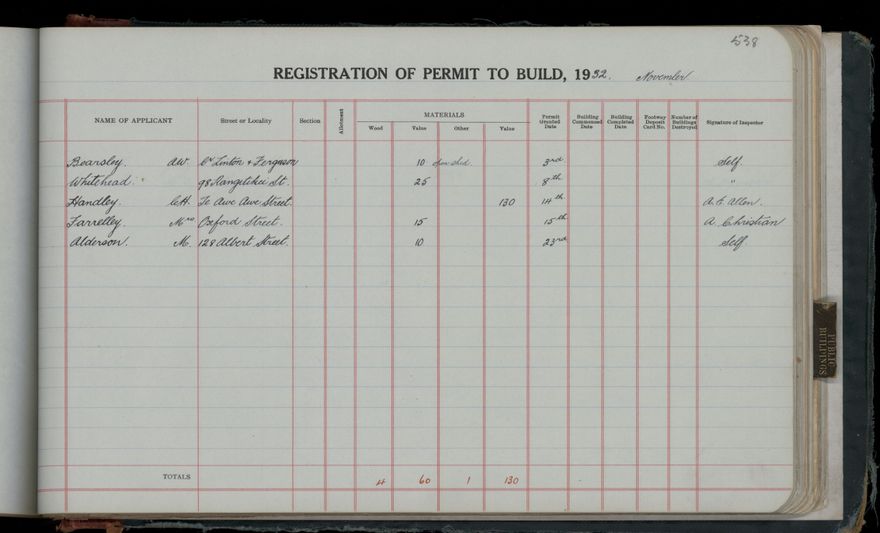 538
REGISTRATION OF PERMIT TO BUILD, 1932. November
NAME OF APPLICANT Street or Locality Section Allotment MATERIALS Wood Value Other Value Permit Granted Date Building Commenced Date Building Completed Date Footway Deposit Card No. Number of Buildings Destroyed Signature of Inspector
Bearsley. A.W. Cr Linton & Ferguson 10 3rd Self.
Whitehead. 98 Rangitikei St. 25 8th "
Handley. C.H. Te Awe Awe Street. 130 14th A. F. Allen.
Farrelley. Mrs Oxford Street. 15 15th A. Christian
Alderson. M. 128 Albert Street. 10 23rd Self.
TOTALS 4 60 1 130
PUBLIC
BUILPINGS